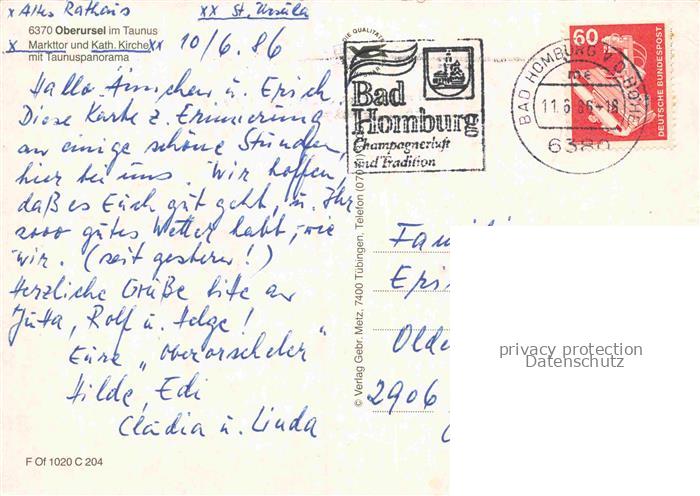 x Altes Rathaus xx St. Ursula
6370 Oberursel im Taunus
x Markttor und Kath. Kirche xx 10/6.86
mit Taunuspanorama
Hallo Ännchen u. Erich
Diese Karte z. Erinnerung
an einige schöne Stunden,
hier bei uns. Wir hoffen,
daß es Euch gut geht, u. Ihr
sooo gutes Wetter habt, wie
wir. (seit gestern!)
Herzliche Grüße bitte an
Jutta, Rolf u. Helge!
Eure „Oberorscheler"
Hilde, Edi
Claudia u. Linda
F Of 1020 C 204
© Verlag Gebr. Metz, 7400 Tübingen, Telefon (070
Bad
Homburg
Champagnerluft
und Tradition
BAD HOMBURG V D HÖHE
me
11.6.86-18
6380
60
DEUTSCHE BUNDESPOST
Fam
Eri
Olde
2906
privacy protection
Datenschutz